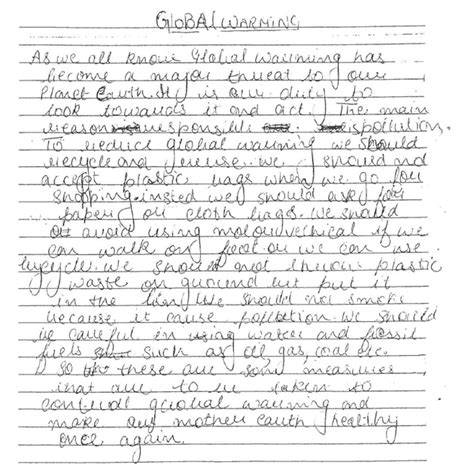 GLOBAL WARMING
As we all know Global warming has
become a major threat to our
Planet Earth. It is our duty to
look towards it and act. The main
reason responsible is pollution.
To reduce global warming we should
recycle and reuse. we should not
accept plastic bags when we go for
shopping. insted we should ask for
paper or cloth bags. we should
avoid using motor vehical if we
can walk on foot or we can use
bycycle. we should not throw plastic
waste on ground but put it
in the bin. We should not smoke
because it cause pollution. we should
be careful in using water and fossil
fuels such as oil, gas, coal etc.
So these are some measures
that are to be taken to
control global warming and
make our mother earth healthy
once again.